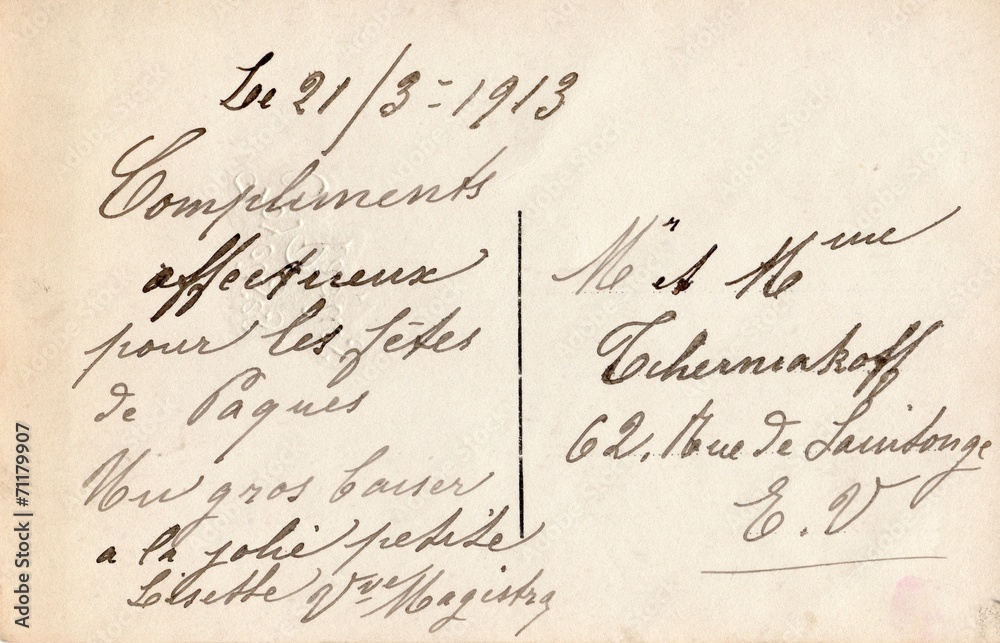 Le 21/3-1913
Compliments
affectueux
pour les fêtes
de Paques
Un gros baiser
a la jolie petite
Lisette Vve Magistry
Mr et Mme
Tcherniakoff
62, Rue de Saintonge
E. V
Adobe Stock | #71179907